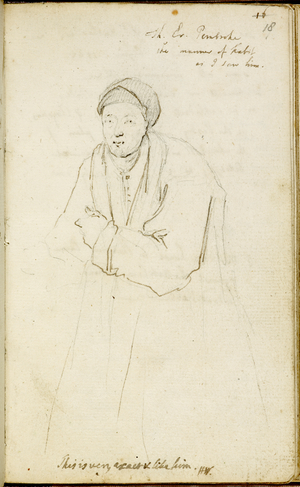 18
Th Er Pembroke
the manner of habit
as I saw him.
This is very exact & like him. HW.